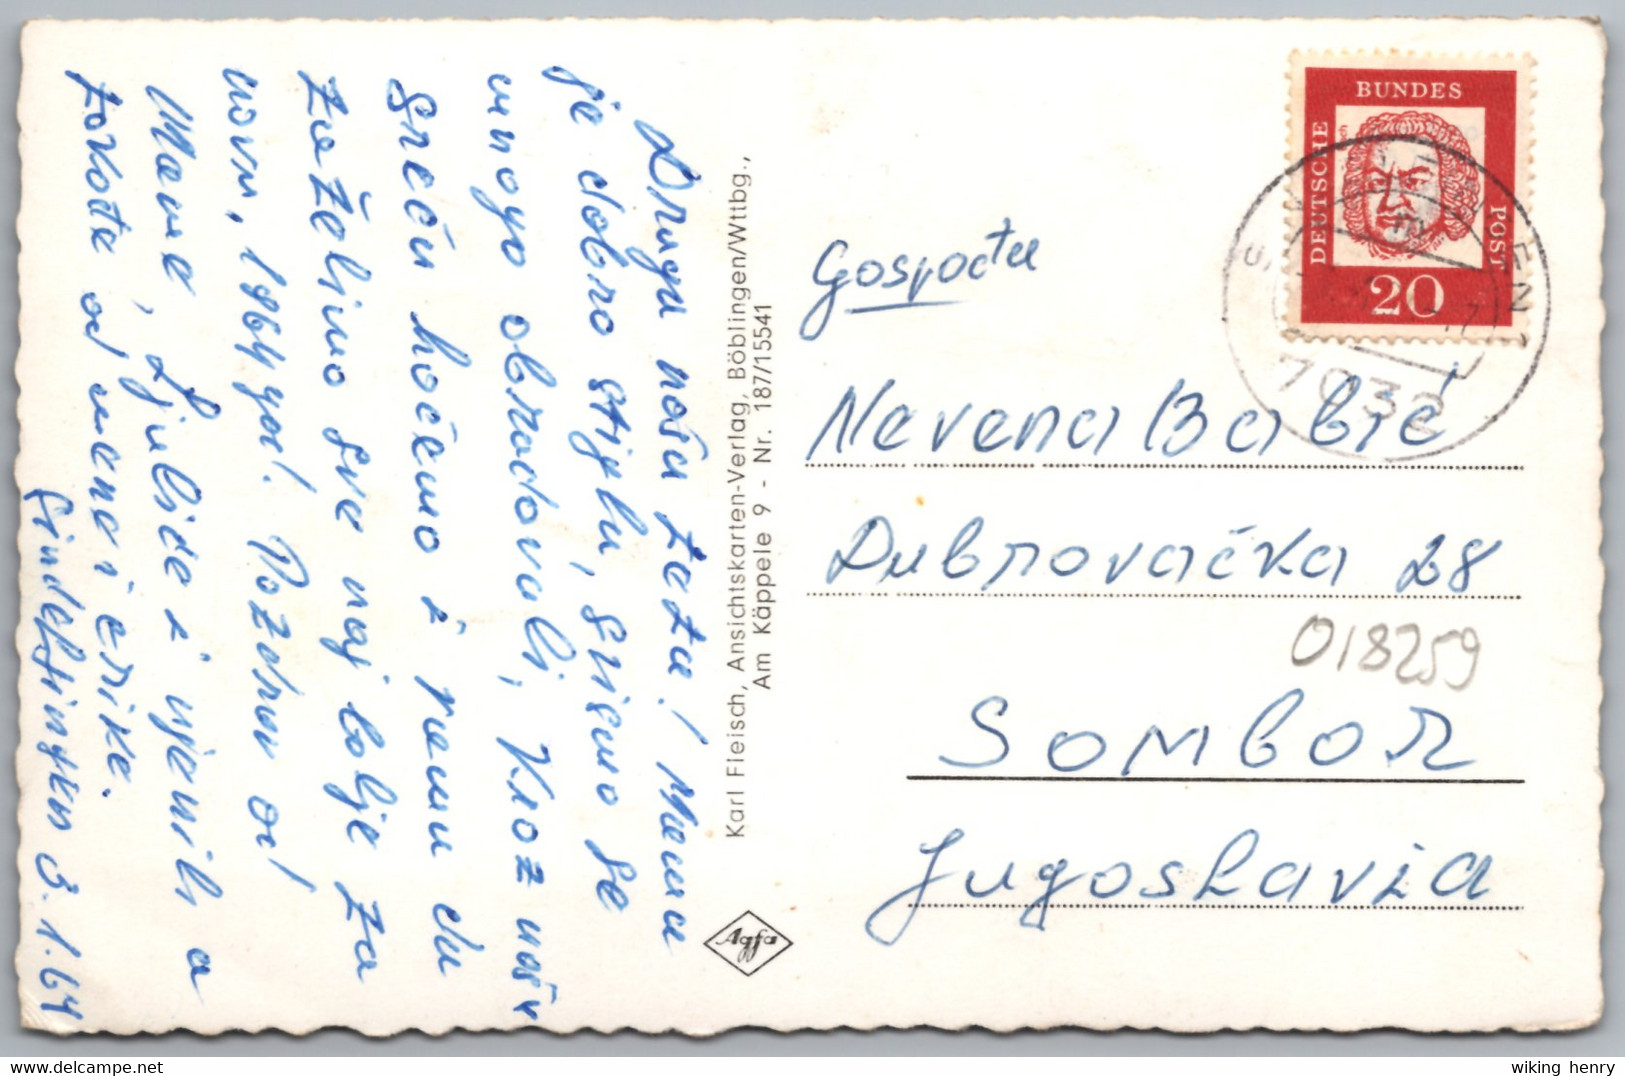 Draga naša zeza! Mama
je dobro stigla, svi smo se
mnogo obradovali, kroz našu
sreću hoćemo i vama da
zaželimo sve naj bolje za
novu, 1964 god! Pozdrav od
Mame, Ljubice i njenih a
takođe od mene i erike.
Sindelfingen 3.1.64
Karl Fleisch, Ansichtskarten-Verlag, Böblingen/Wttbg.,
Am Käppele 9 - Nr. 187/15541
Agfa
DEUTSCHE
BUNDES
POST
20
7032
Gospođa
Nevena Babić
Dubrovačka 28
018259
SOMBOR
Jugoslavia
wiking henry